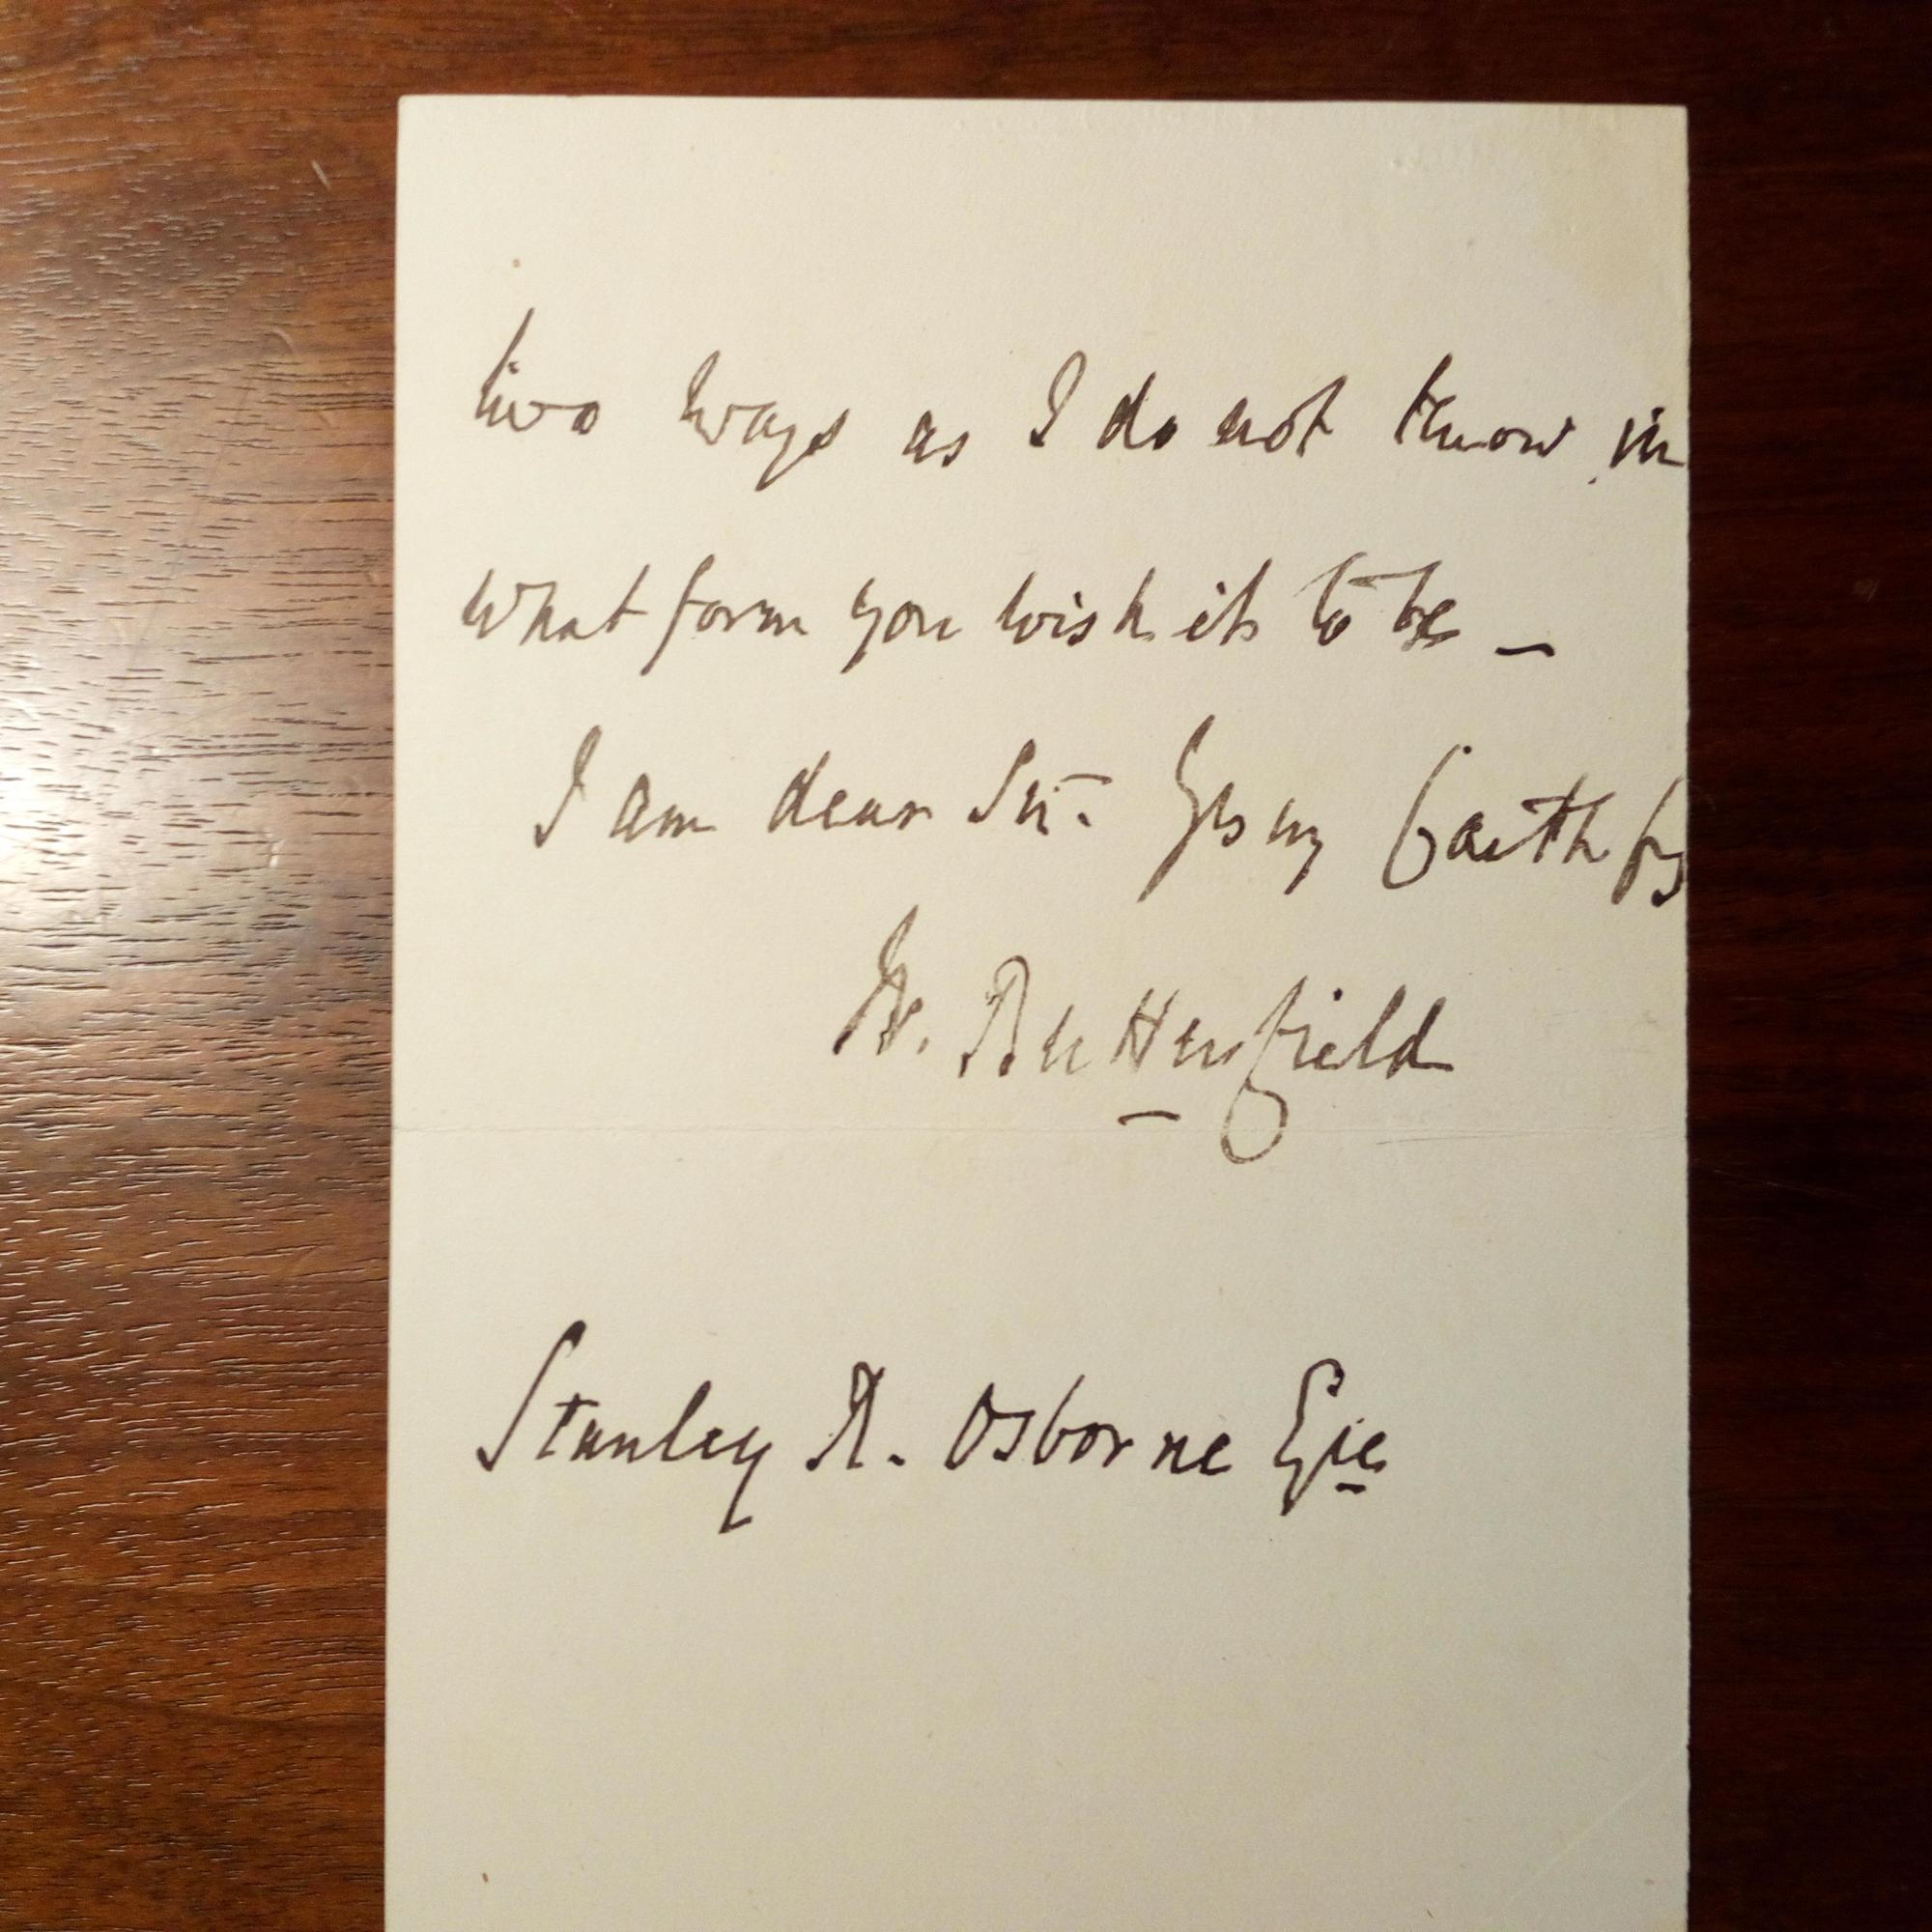 two ways as I do not know in
what form you wish it to be —
I am dear Sir. Yrs vy faithfy
W. Butterfield
Stanley A. Osborne Esqe